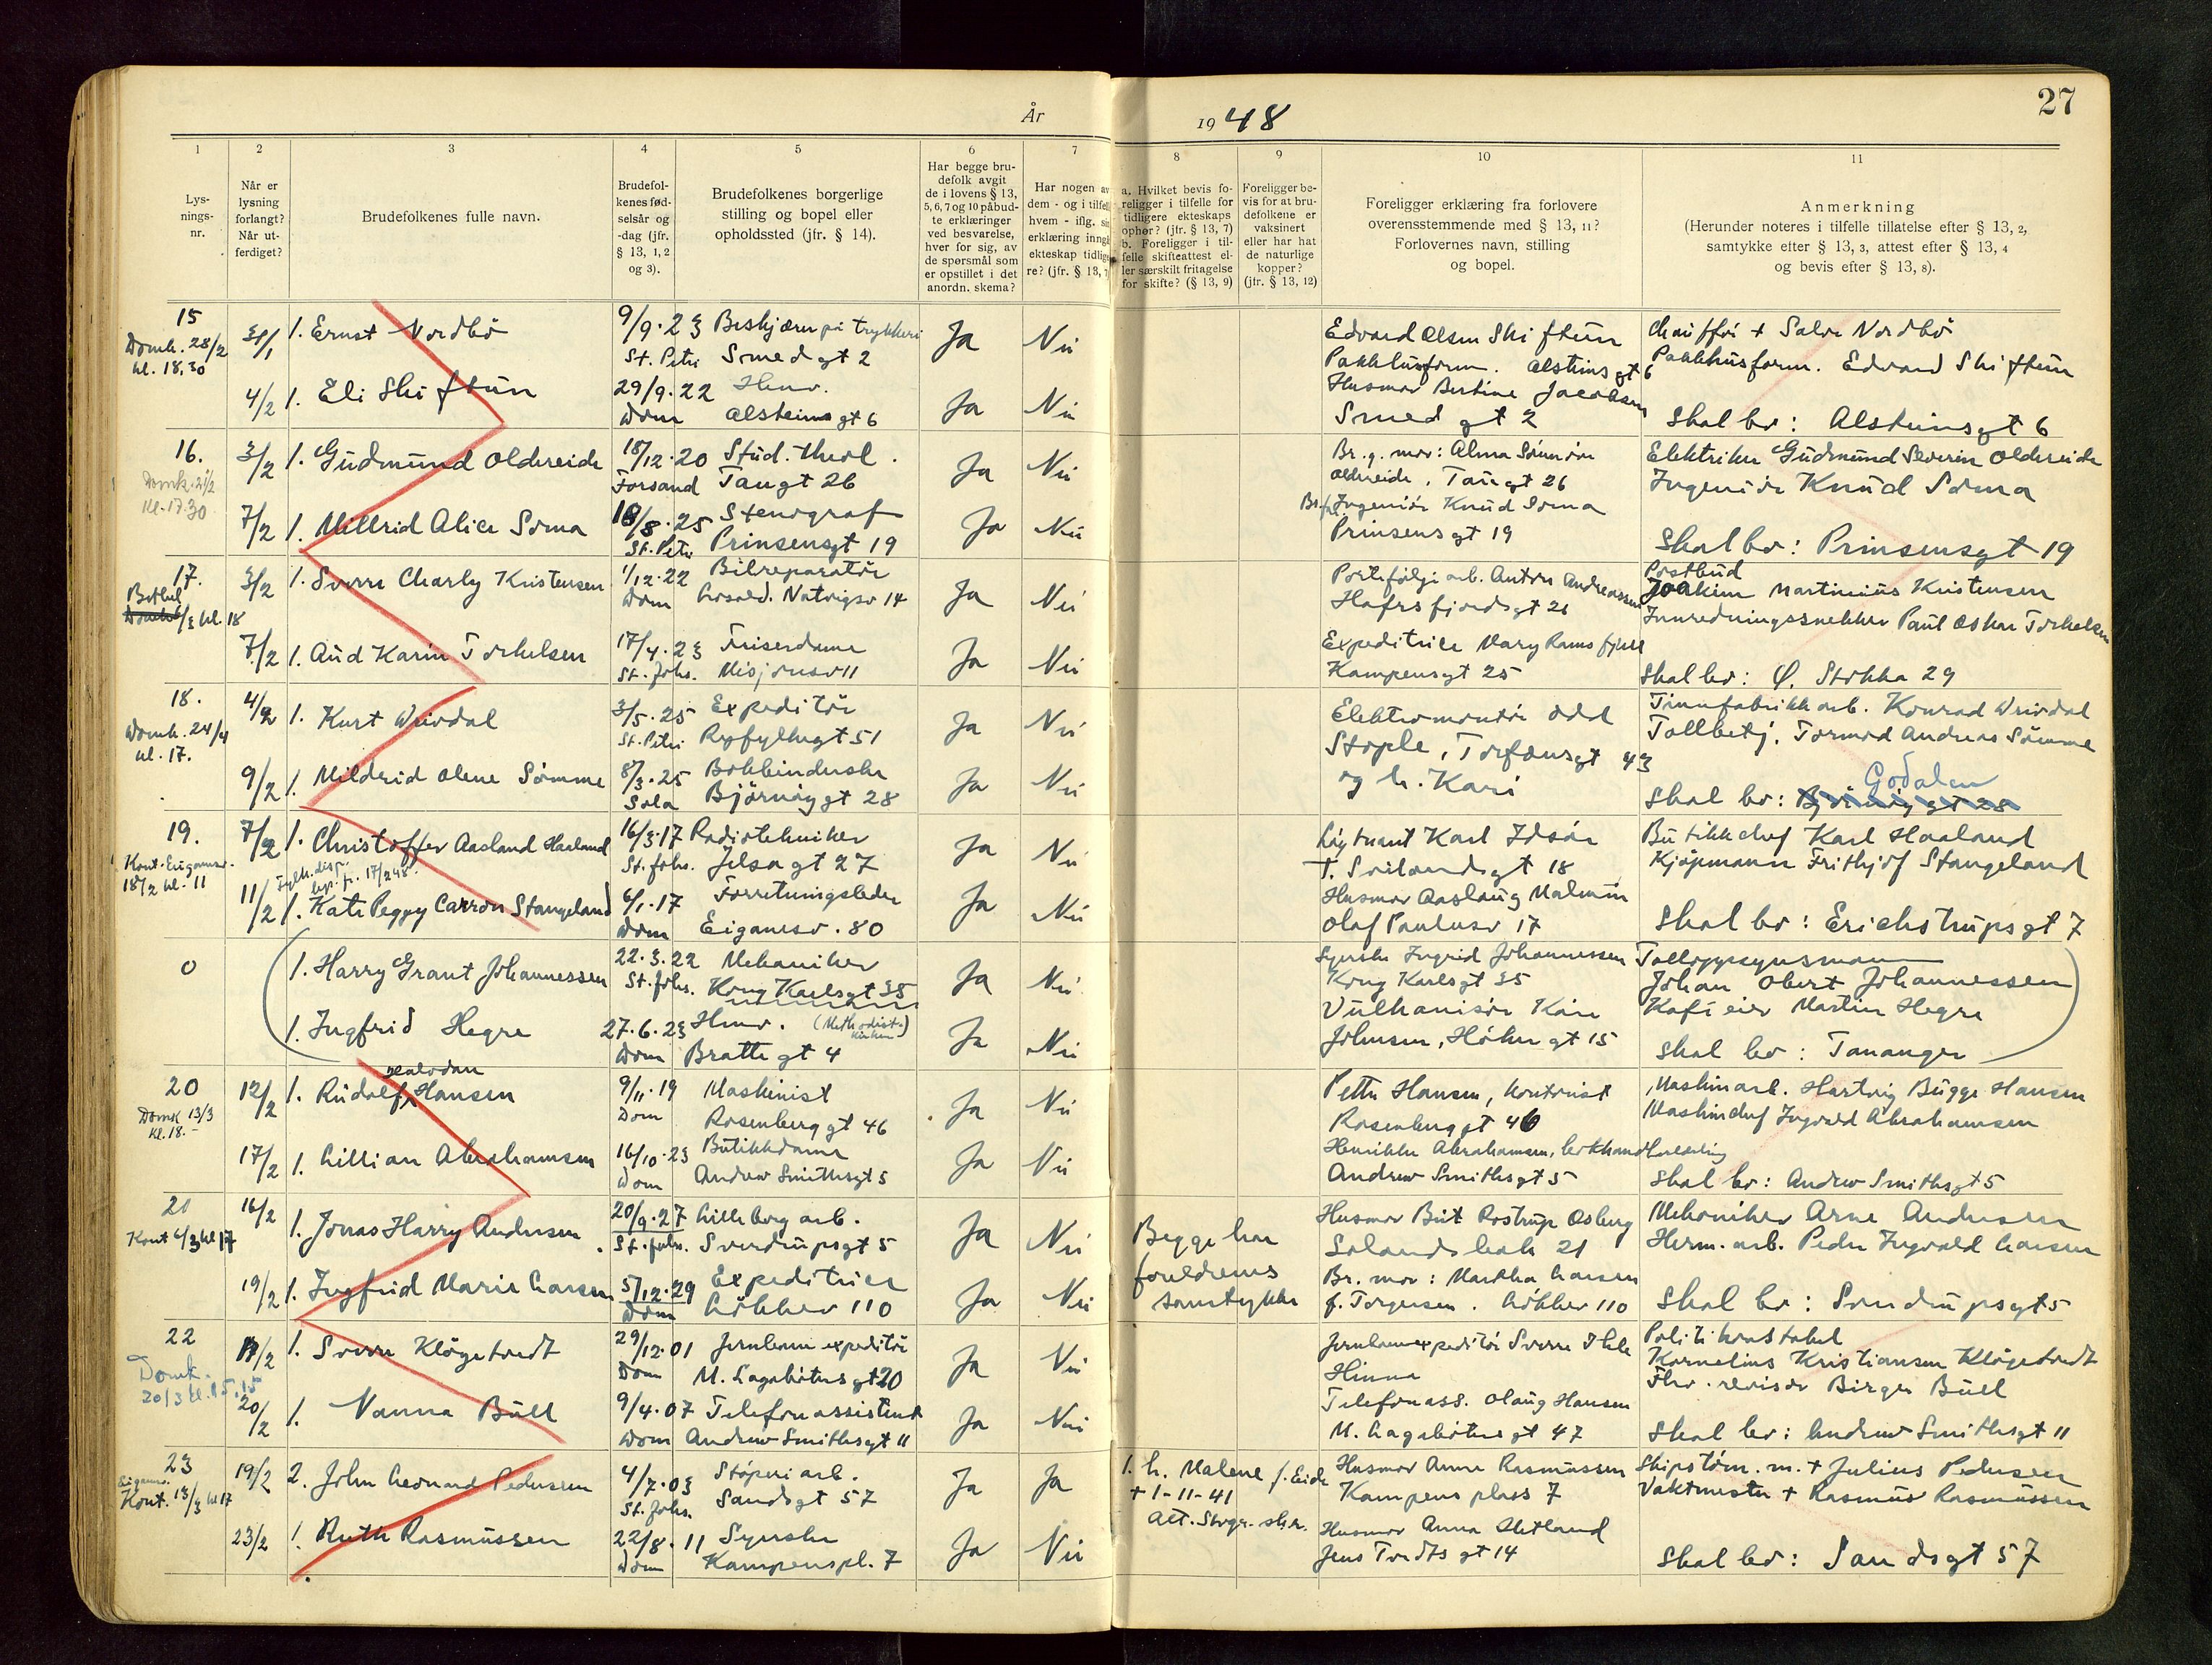 27
År 1948
1
2
3
4
5
6
7
8
9
10
11
Lys-
nings-
nr.
Når er
lysning
forlangt?
Når ut-
ferdiget?
Brudefolkenes fulle navn.
Brudefol-
kenes fød-
selsår og
-dag (jfr.
§ 13, 1, 2
og 3).
Brudefolkenes borgerlige
stilling og bopel eller
opholdssted (jfr. § 14).
Har begge bru-
defolk avgit
de i lovens § 13,
5, 6, 7 og 10 påbud-
te erklæringer
ved besvarelse,
hver for sig, av
de spørsmål som
er opstillet i det
anordn. skema?
Har nogen av
dem - og i tilfelle
hvem - iflg. sin
erklæring inngå
ekteskap tidlige
re? (jfr. § 13, 7)
a. Hvilket bevis fo-
religger i tilfelle for
tidligere ekteskaps
ophør? (jfr. § 13, 7)
b. Foreligger i til-
felle skifteattest el-
ler særskilt fritagelse
for skifte? (§ 13, 9)
Foreligger be-
vis for at bru-
defolkene er
vaksinert
eller har hat
de naturlige
kopper?
(jfr. § 13, 12)
Foreligger erklæring fra forlovere
overensstemmende med § 13, 11?
Forlovernes navn, stilling
og bopel.
Anmerkning
(Herunder noteres i tilfelle tillatelse efter § 13, 2,
samtykke efter § 13, 3, attest efter § 13, 4
og bevis efter § 13, 8).
15
Domk. 28/2
kl. 18,30
31/1
1. Ernst Nordbö
9/9.23
St. Petri
Beskjærer på trykkeri
Smedgt 2
Ja
Nei
Edvard Olsen Skiftun
Pakkhusform. Alsteinsgt 6
Chaufför + Salve Nordbö
Pakkhusform. Edvard Skiftun
4/2
1. Eli Skiftun
29/9.22
Dom
Hmv.
Alsteinsgt 6
Ja
Nei
Husmor Bertine Jacobsen
Smedgt 2
Skal bo: Alsteinsgt 6
16.
Domk. 21/2
Kl. 17.30
3/2
1. Gudmund Oldereide
18/12.20
Forsand
Stud. theol.
Taugt 26
Ja
Nei
Br.g. mor: Alma
Oldereide, Taugt 26
Elektriker Gudmund Severin Oldereide
Ingeniör Knud Söma
7/2
1. Millrid Alice Soma
18/8.25
St. Petri
Stenograf
Prinsensgt 19
Ja
Nei
Br.f. Ingeniör Knud Soma
Prinsensgt 19
Skal bo: Prinsensgt 19
17.
Betel
6/3 kl. 18
3/2
1. Sverre Charly Kristensen
1/12.22
Dom
Bilreparatör
Natvigsv 14
Ja
Nei
Porteföljearb. Anton Andreassen
Hafrsfjordsgt 21
Postbud
Joakim Martinius Kristensen
Innredningssnekker Paul Oskar Torkelsen
7/2
1. Aud Karin Torkelsen
17/4.23
St. Johs.
Friserdame
Misjonsv 11
Ja
Nei
Expeditrice Mary Ramsfjell
Kampensgt 25
Skal bo: Ø. Stokka 29
18.
Domk. 24/4
kl. 17.
4/2
1. Kurt
3/5.25
St. Petri
Expeditör
Ryfylkegt 51
Ja
Nei
Elektromontör Odd
Stople, Torfæusgt 43
og h. Kari
Tinnfabrikkarb. Konrad
Tollbetj. Tormod Andreas Sömme
9/2
1. Mildrid Olene Sömme
8/3.25
Sola
Bokbinderske
Björnöygt 28
Ja
Nei
Godalen
Skal bo: Björnöygt 28
19.
Kont. Eiganesv.
18/2 kl. 11
7/2
1. Christoffer Aasland Haaland
16/3.17
St. Johs.
Radiotekniker
Jelsagt 27
Ja
Nei
Löytnant Karl Idsöe
T. Svilandsgt 18
Butikkchef Karl Haaland
Kjöpmann Frithjof Stangeland
11/2
1. Kate Peggy Carron Stangeland
6/1.17
Dom
Forretningsleder
Eiganesv. 80
Ja
Nei
Husmor Aaslaug Malmin
Olaf Paulusv 17
Skal bo: Erichstrupsgt 7
0
1. Harry Grant Johannessen
22.3.22
St. Johs.
Mekaniker
Kong Karlsgt 35
Ja
Nei
Syerske Ingrid Johannessen
Kong Karlsgt 35
Tolloppsynsmann
Johan Obert Johannessen
Kaféeier Martin Hegre
1. Ingfrid Hegre
27.6.23
Dom
Hmv. (Methodist-
kirken)
Brattegt 4
Ja
Nei
Vulkanisör Kåre
Johnsen, Hökergt 15
Skal bo: Tananger
20
Domk 13/3
Kl. 18.-
12/2
1. Rudolf Hansen
9/11.19
Dom
Maskinist
Rosenberggt 46
Ja
Nei
Petter Hansen, kontorist
Rosenberggt 46
Maskinarb. Hartvig Bugge Hansen
Maskinchef Ingvald Abrahamsen
17/2
1. Lillian Abrahamsen
16/10.23
Dom
Butikkdame
Andrew Smithsgt 5
Ja
Nei
Henrikke Abrahamsen,
Andrew Smithsgt 5
Skal bo: Andrew Smithsgt 5
21
Kont 6/3 kl 17
16/2
1. Jonas Harry Andersen
20/9.27
St. Johs.
Lilleborg arb.
Sverdrupsgt 5
Ja
Nei
Begge har
foreldrenes
samtykke
Husmor Brit Rostrup Osberg
Solandsbakk 21
Mekaniker Arne Andersen
Herm. arb. Peder Ingvald Larsen
19/2
1. Ingfrid Marie Larsen
5/12.29
Dom
Expeditrice
Lökkev 110
Ja
Nei
Br. mor: Martha Larsen
f. Torgersen. Lökkev 110
Skal bo: Sverdrupsgt 5
22
Domk.
20/3 kl. 15.15
18/2
1. Sverre Klögetvedt
29/12.01
Dom
Jernbaneexpeditör
M. Lagabötersgt 20
Ja
Nei
Jernbaneexpeditör Sverre Ihle
Hinna
Politikonstabel
Kornelius Kristiansen Klögetvedt
Fhv. revisor Birger Bull
20/2
1. Nanna Bull
9/4.07
Dom
Telefonassistent
Andrew Smithsgt 11
Ja
Nei
Telefonass. Olaug Hansen
M. Lagabötersgt 47
Skal bo: Andrew Smithsgt 11
23
Eiganesv.
Kont. 13/3 kl 17
19/2
2. John Leonard Pedersen
4/7.03
St. Johs.
Stöperiarb.
Sandsgt 57
Ja
Ja
1. h. Malene f. Eide
+ 1-11-41
Husmor Anne Rasmussen
Kampens plass 7
Skipstöm. m. + Julius Pedersen
Vaktmester + Rasmus Rasmussen
23/2
1. Ruth Rasmussen
22/8.11
Dom
Syerske
Kampenspl. 7
Ja
Nei
Husmor Anna Sketland
Jens Tvedtsgt 14
Skal bo: Sandsgt 57